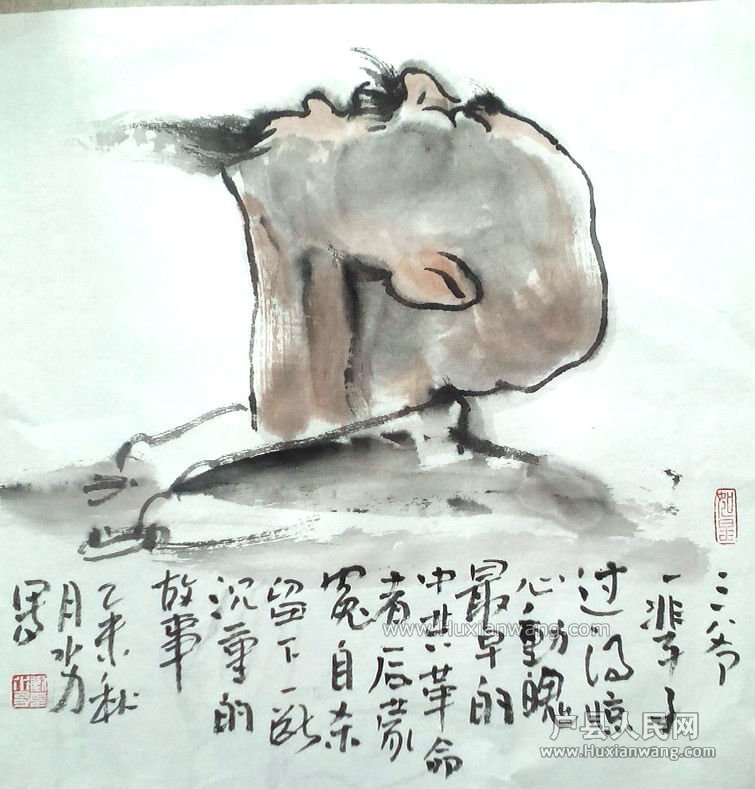 三八爷
一辈子
过得惊
心動魄
最早的
中共革命
者后蒙
冤自杀
留下一段
沉重的
故事
乙未秋
月
墨
www.Huxianwang.com
户县人民网
www.Huxianwang.com